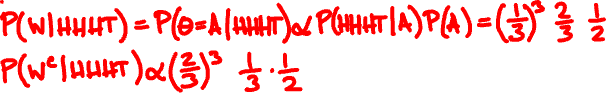 P(W|HHHT) = P(θ=A|HHHT) ∝ P(HHHT|A)P(A) = (1/3)³ 2/3 1/2
P(Wᶜ|HHHT) ∝ (2/3)³ 1/3 · 1/2